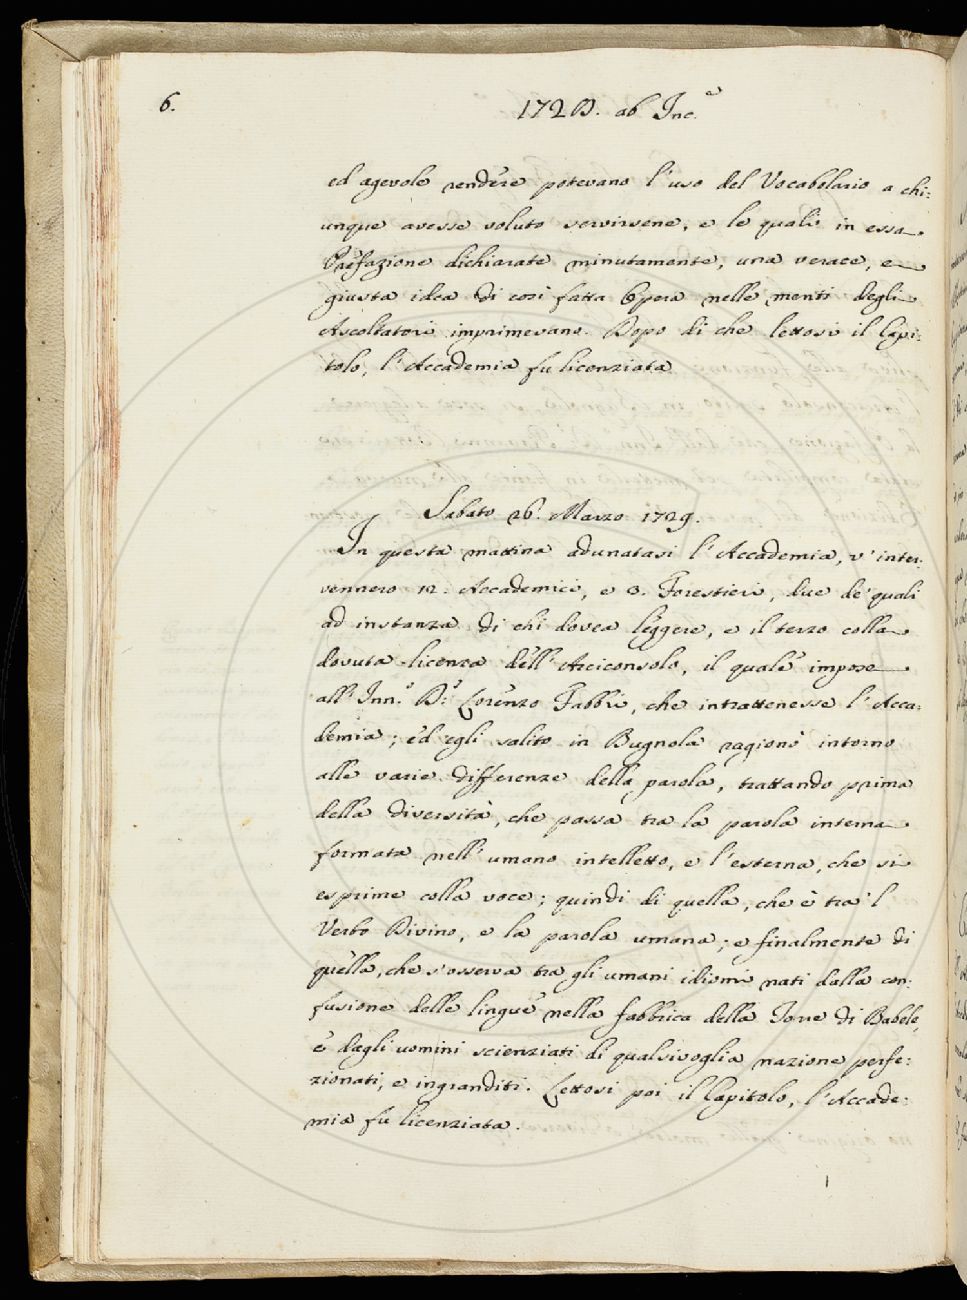 6.
1728. ab Inc.e
ed agevole rendere potevano l'uso del Vocabolario a chi:
unque avesse voluto servirsene, e le quali in essa
Prefazione dichiarate minutamente, una verace, e
giusta idea di così fatta Opera nelle menti degli
Ascoltatori imprimevano. Dopo di che lettosi il Capi:
tolo, l'Accademia fu licenziata
Sabato 26. Marzo 1729.
In questa mattina adunatasi l'Accademia, v'inter:
vennero 12. Accademici, e 3. Forestieri, due de' quali
ad instanza di chi dovea leggere, e il terzo colla
dovuta licenza dell'Arciconsolo, il quale impose
all'Inn.o D.r Lorenzo Fabbri, che intrattenesse l'Acca:
demia; ed egli salito in Bugnola ragionò intorno
alle varie differenze della parola, trattando prima
della diversità, che passa tra la parola interna
formata nell'umano intelletto, e l'esterna, che si
esprime colla voce; quindi di quella, che è tra 'l
Verbo Divino, e la parola umana; e finalmente di
quella, che s'osserva tra gli umani idiomi nati dalla con:
fusione delle lingue nella fabbrica della Torre di Babele,
e dagli uomini scienziati di qualsivoglia nazione perfe:
zionati, e ingranditi. Lettosi poi il Capitolo, l'Accade:
mia fu licenziata.